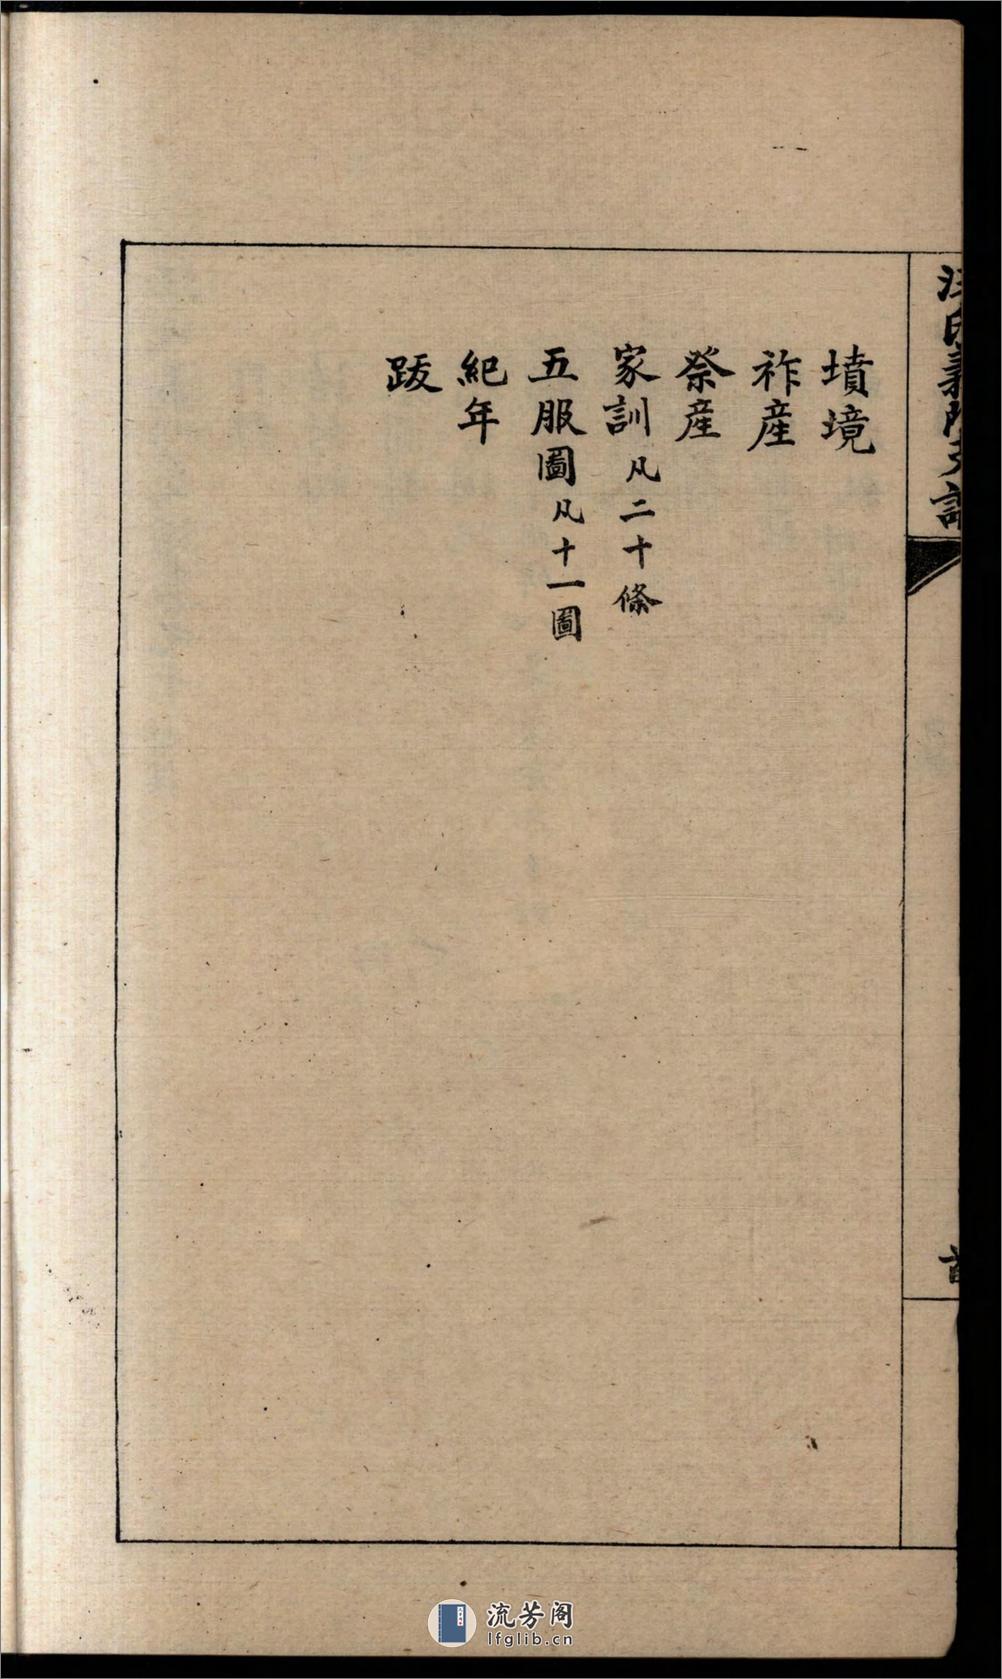 汪氏義門支譜
首
墳境
祚產
祭產
家訓 凡二十條
五服圖 凡十一圖
紀年
跋
流芳阁
lfglib.cn